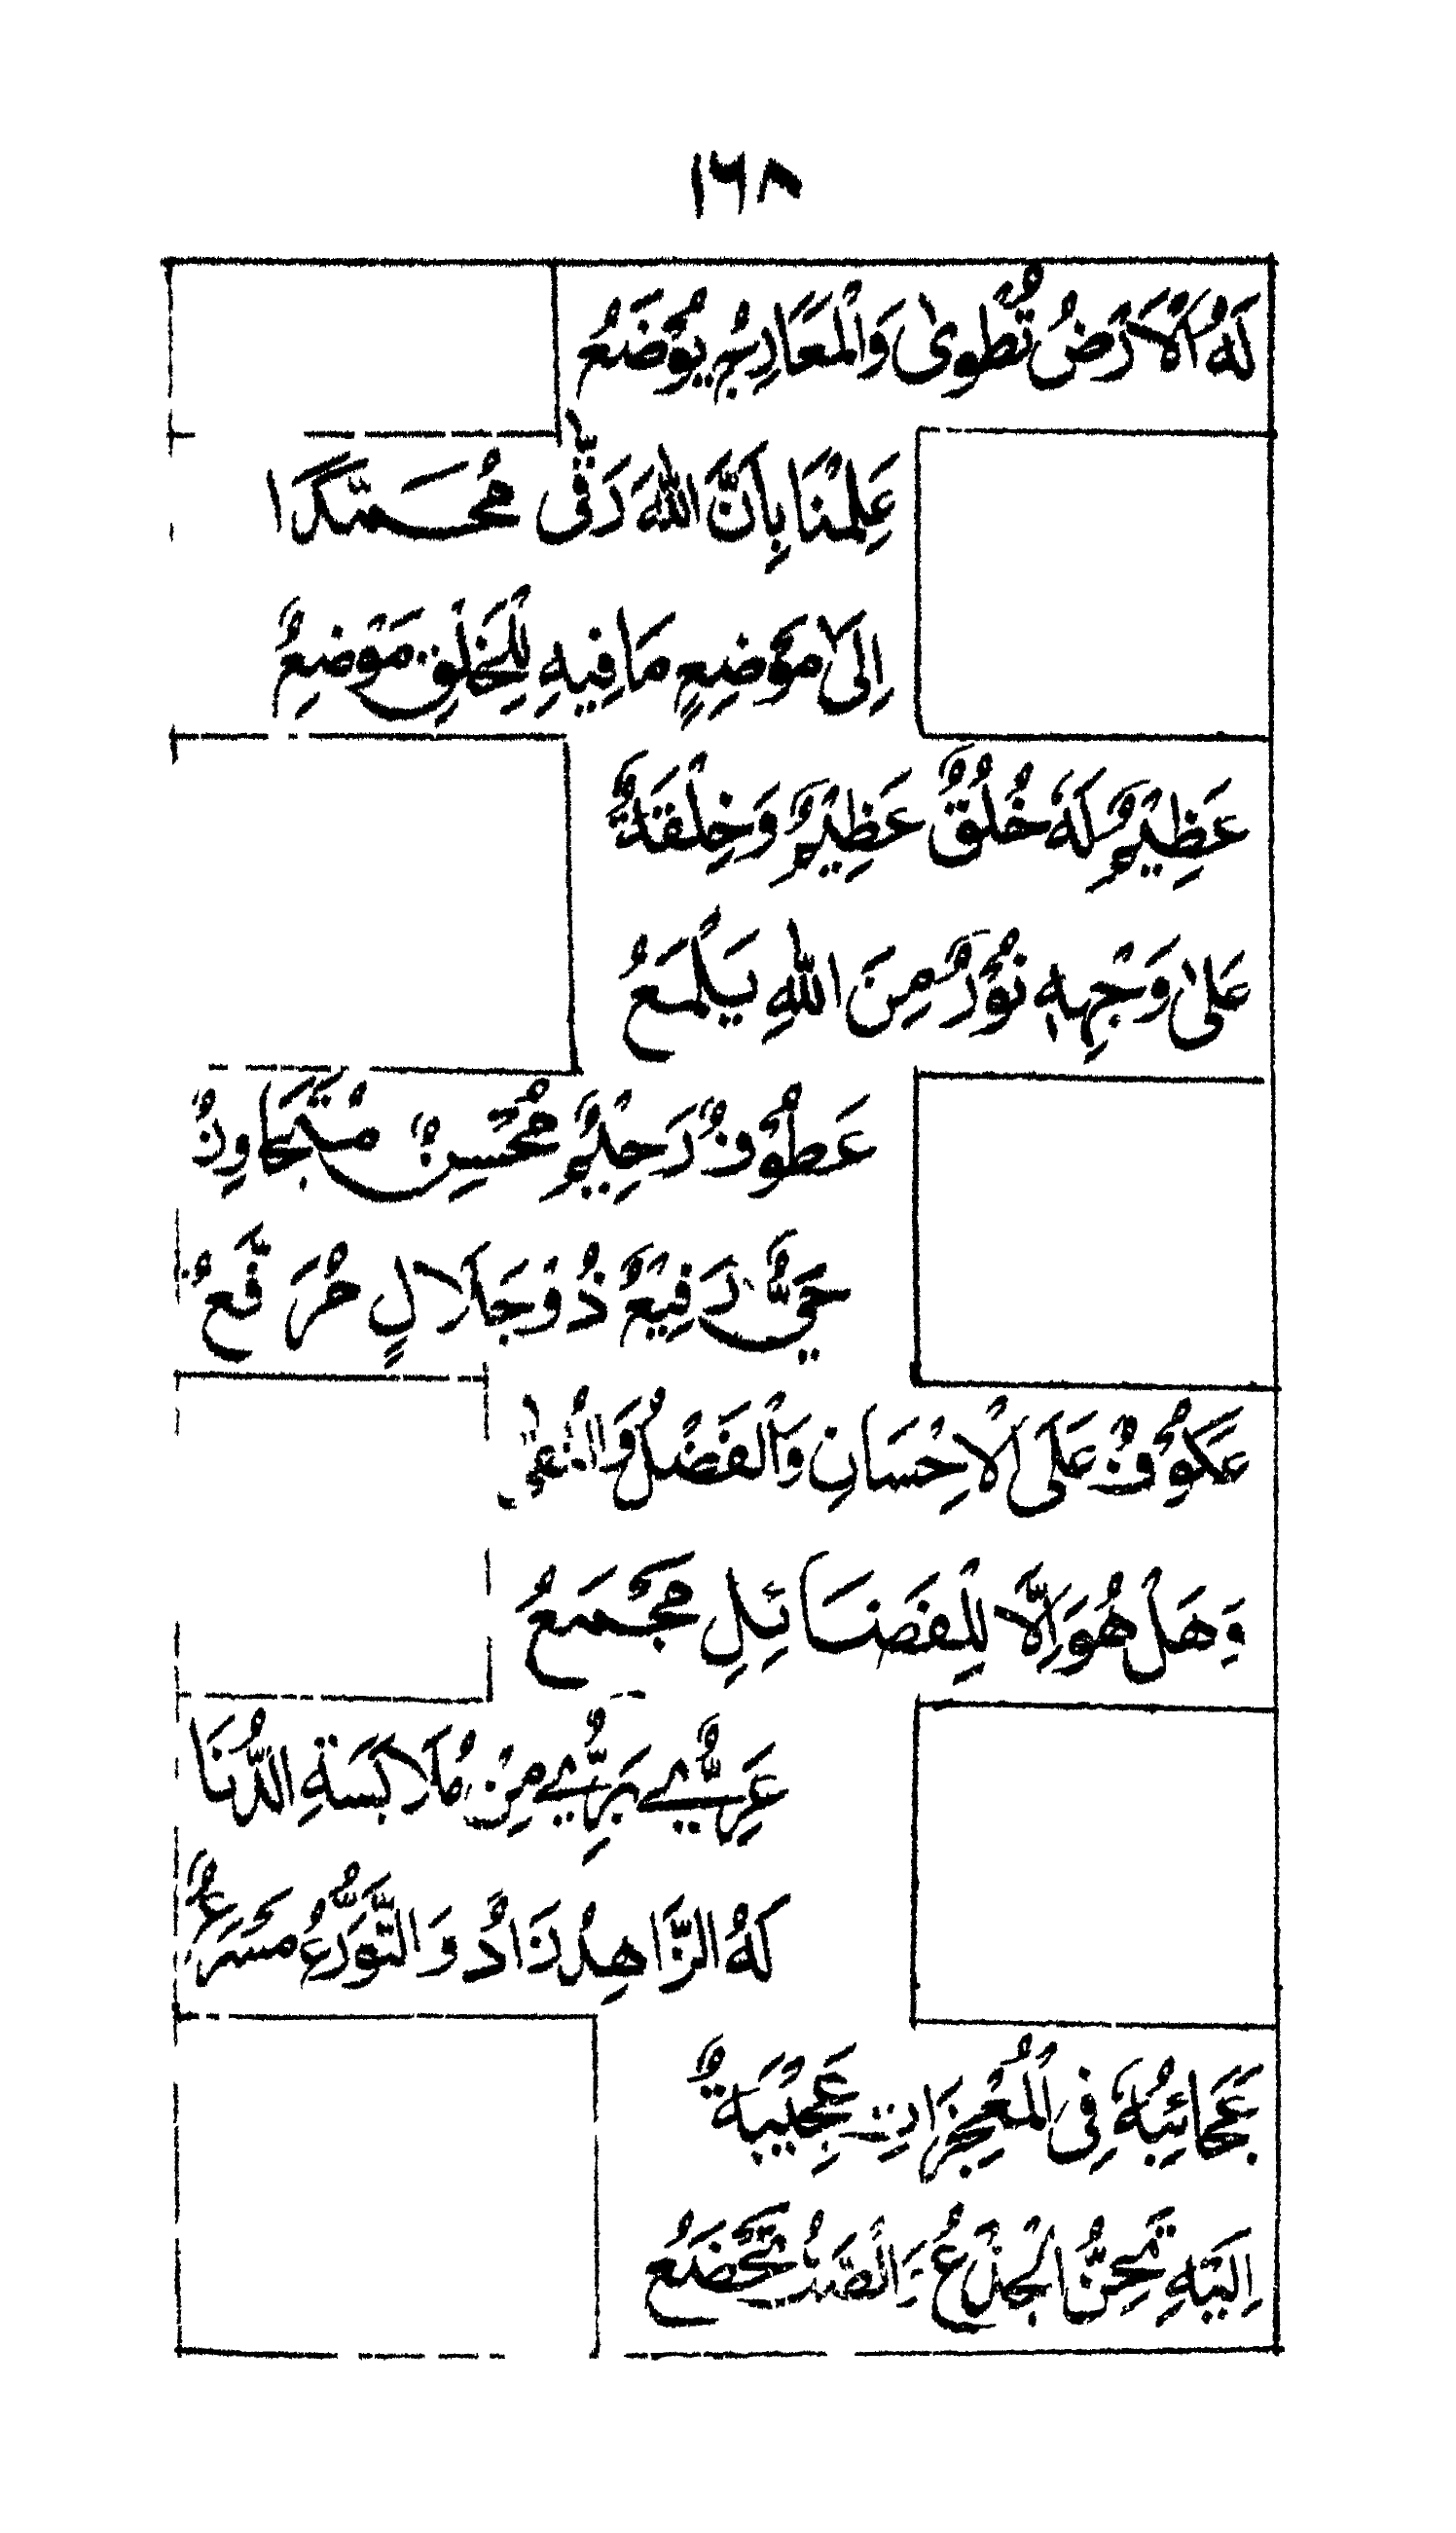 ١٦٨
لَهُ الْاَرْضُ تُطْوىٰ وَالْمَعَارِيجُ يُوْضَعُ
عَلِمْنَا بِاَنَّ اللهَ رَقّٰى مُحَمَّدًا
اِلىٰ مَوْضِعٍ مَا فِيهِ لِلْخَلْقِ مَوْضِعٌ
عَظِيْمٌ لَهٗ خُلُقٌ عَظِيْمٌ وَخِلْقَةٌ
عَلىٰ وَجْهِهٖ نُوْرٌ مِنَ اللهِ يَلْمَعُ
عَطُوْفٌ رَحِيْمٌ مُحْسِنٌ مُتَجَاوِزٌ
حَيِيٌّ رَفِيْعٌ ذُوْ جَلَالٍ مُرَفَّعٌ
عَكُوْفٌ عَلَى الْاِحْسَانِ وَالْفَضْلِ وَالتُّقىٰ
وَهَلْ هُوَ اِلَّا لِلْفَضَائِلِ مَجْمَعُ
عَرِيٌّ بَرِيٌّ مِنْ مُلَابَسَةِ الدُّنَا
لَهُ الزَّاهِدُ زَادٌ وَالتَّوَرُّعُ مَشْرَعٌ
عَجَائِبُهٗ فِى الْمُعْجِزَاتِ عَجِيْبَةٌ
اِلَيْهِ تَحِنُّ الْجِذْعُ وَالصَّدُّ تَخْضَعُ